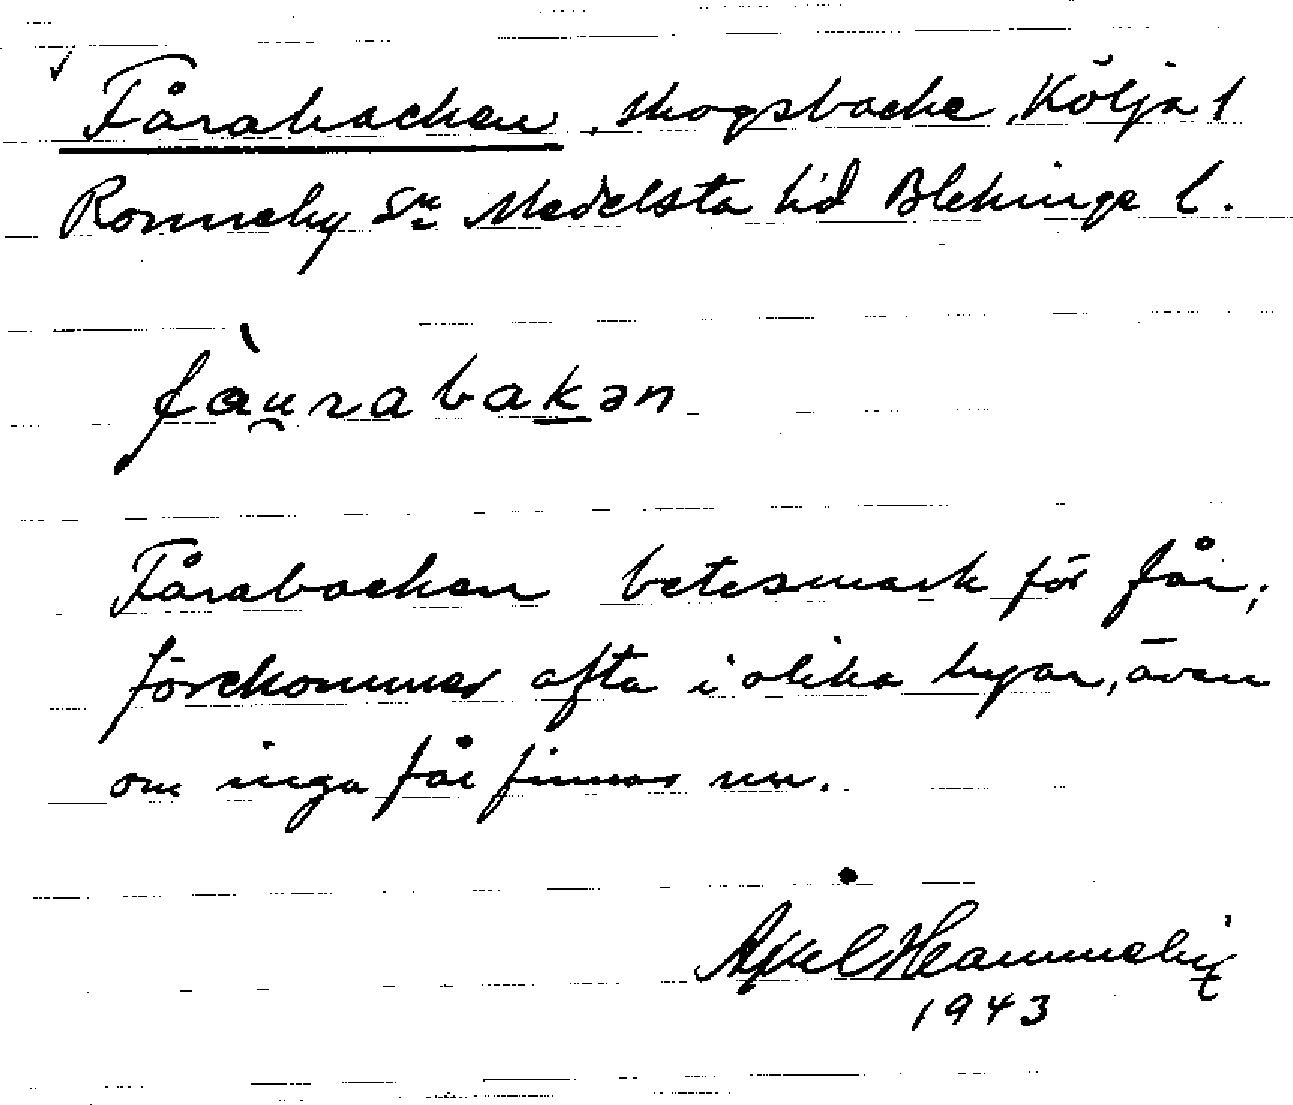 Fårabacken, skogsbacke, Kölja 1
Ronneby Sn Medelsta hd Blekinge l.
fàu̯rabakən
Fårabacken betesmark för får,
förekommer ofta i olika byar, även
om inga får finnas nu.
Axel Hemmeby
1943